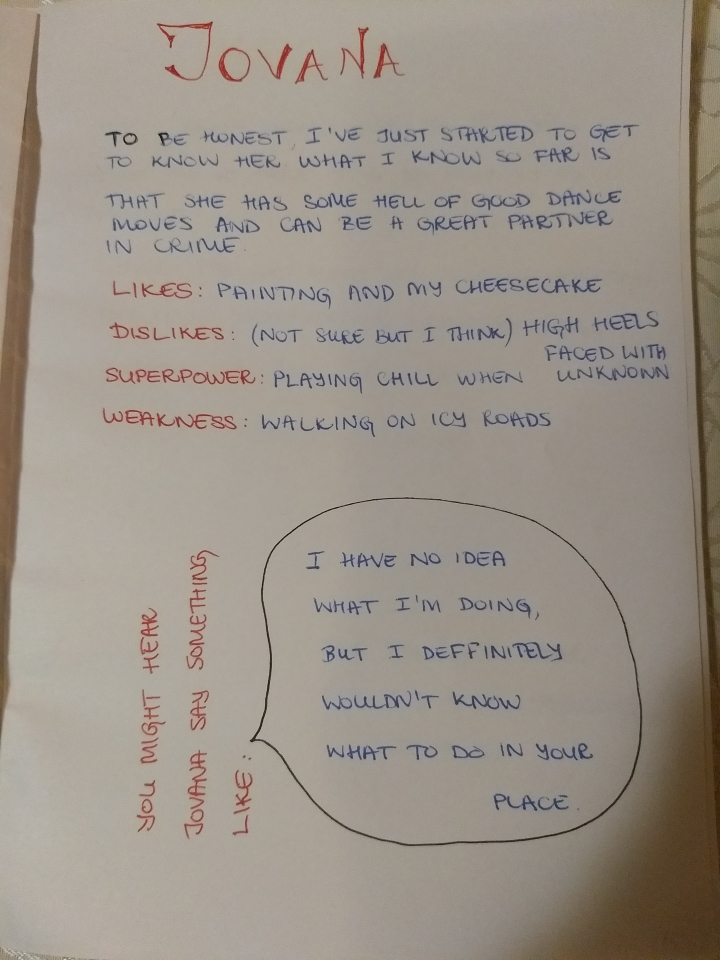 JOVANA
TO BE HONEST, I'VE JUST STARTED TO GET
TO KNOW HER. WHAT I KNOW SO FAR IS
THAT SHE HAS SOME HELL OF GOOD DANCE
MOVES AND CAN BE A GREAT PARTNER
IN CRIME.
LIKES: PAINTING AND MY CHEESECAKE
DISLIKES: (NOT SURE BUT I THINK) HIGH HEELS
SUPERPOWER: PLAYING CHILL WHEN FACED WITH
UNKNOWN
WEAKNESS: WALKING ON ICY ROADS
YOU MIGHT HEAR
JOVANA SAY SOMETHING
LIKE:
I HAVE NO IDEA
WHAT I'M DOING,
BUT I DEFFINITELY
WOULDN'T KNOW
WHAT TO DO IN YOUR
PLACE.